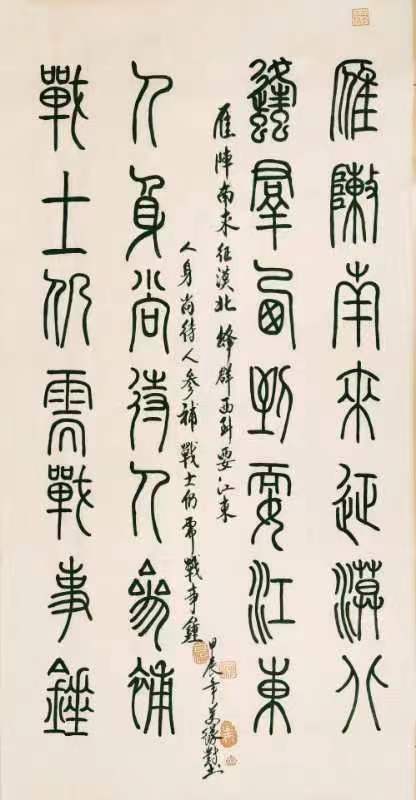 雁陣南來征漠北
蜂群西到耍江東
人身尚待人參補
戰士仍需戰事錘
雁陣南来征漠北蜂群西到耍江東
人身尚待人參補戰士仍需戰事錘
甲辰年